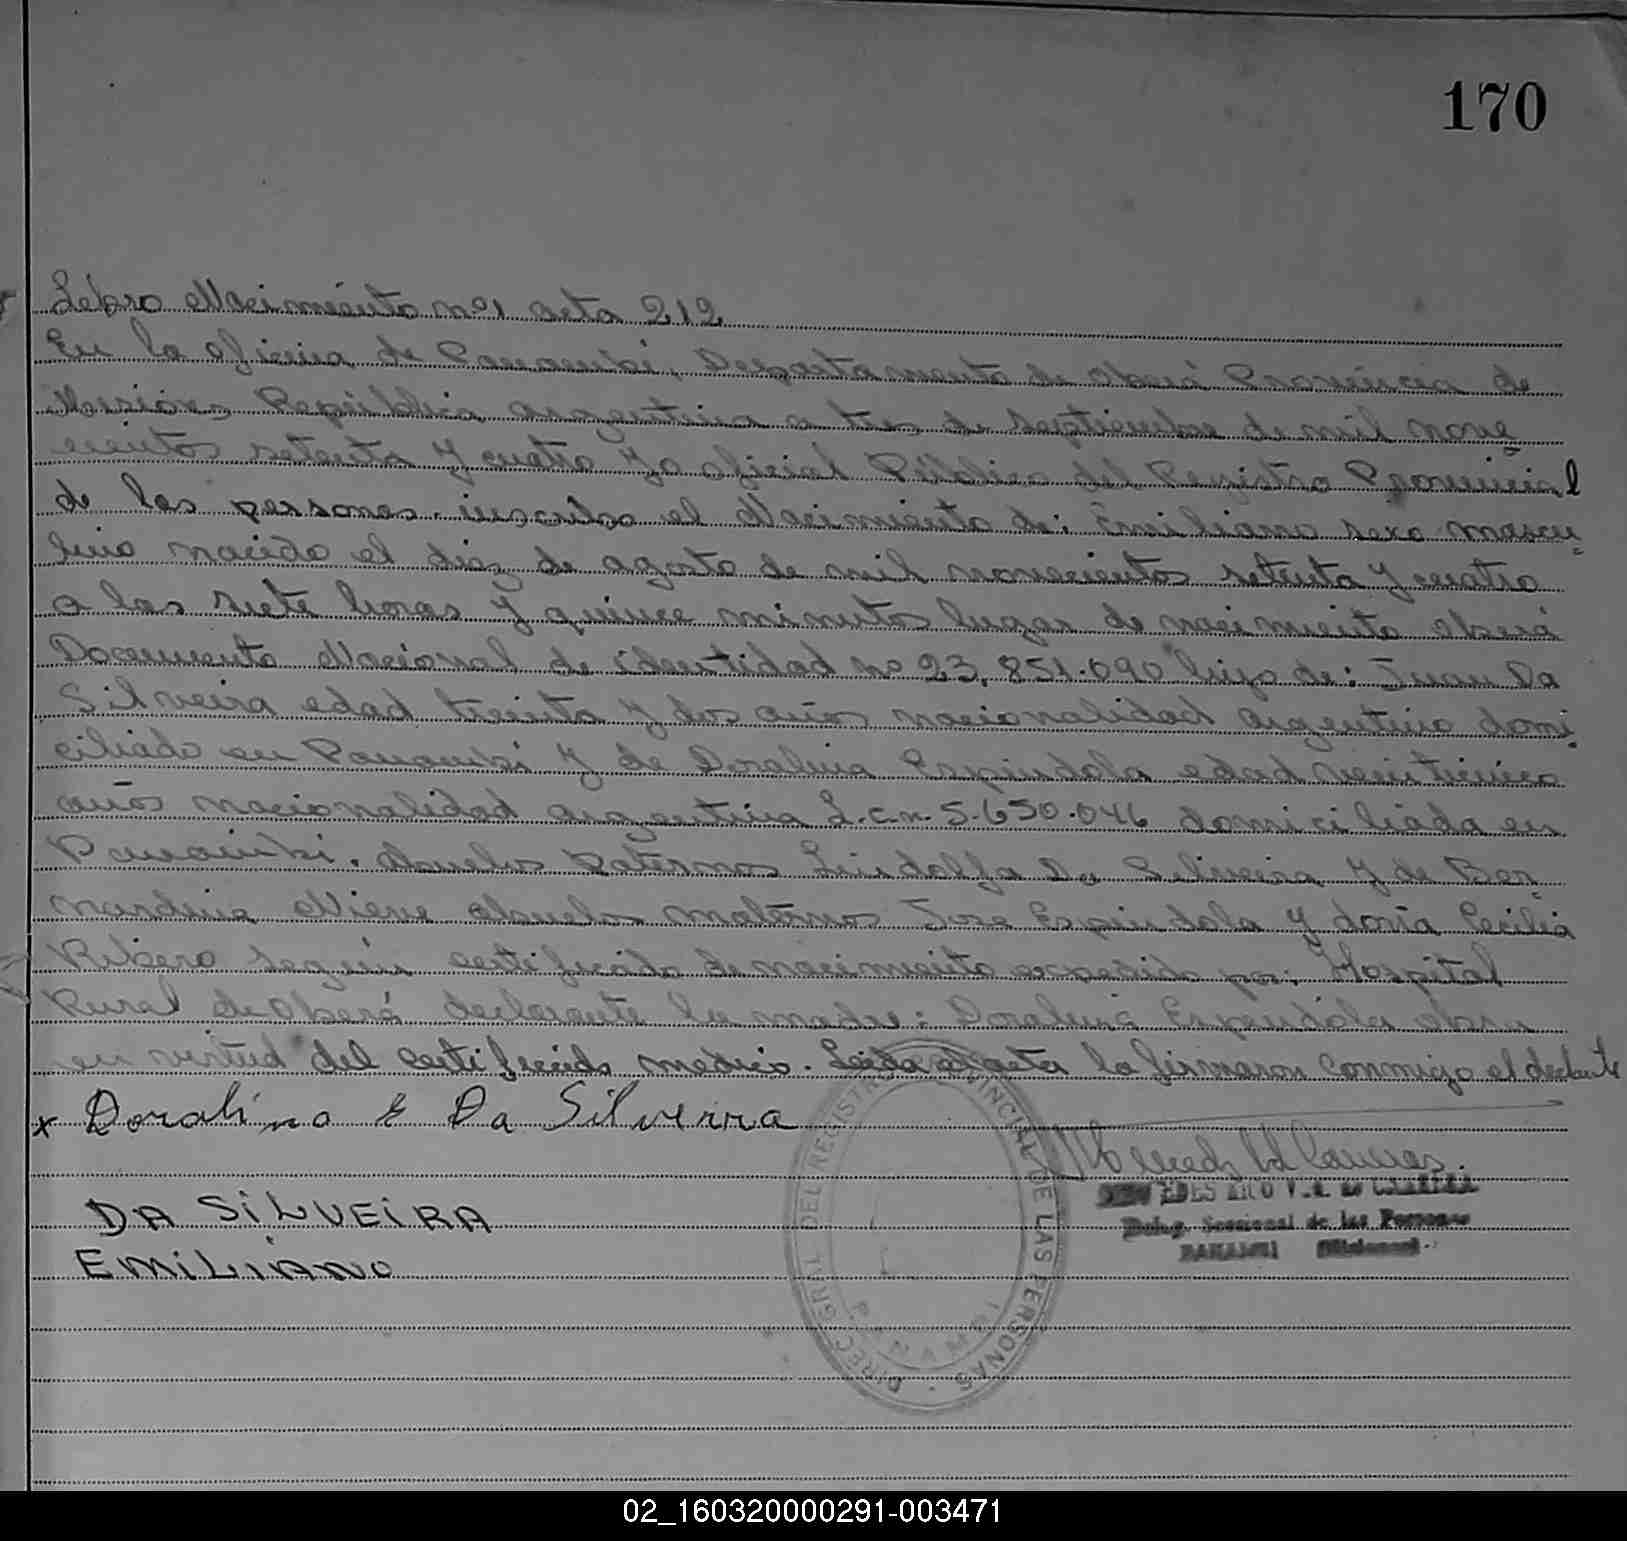 170
Libro Nacimiento nº1 acta 212
En la oficina de Panambi, Departamento de Oberá Provincia de
Misiones República Argentina a tres de Septiembre de mil nove
cientos setenta y cuatro yo oficial Público del Registro Provincial
de las personas. inscribo el Nacimiento de: Emiliano sexo mascu-
lino nacido el diez de agosto de mil novecientos setenta y cuatro
a las siete horas y quince minutos lugar de nacimiento Oberá
Documento Nacional de identidad nº 23.851.090 hijo de: Juan Da
Silveira edad treinta y dos años nacionalidad argentino domi-
ciliado en Panambi y de Doralina Espindola edad veinticinco
años nacionalidad argentina L.c.n. 5.650.046 domiciliada en
Panambi. Abuelos Paternos Lindolfa Da Silveira y de Ber-
nardina Nieve abuelos maternos Jose Espindola y doña Cecilia
Ribero según certificado de nacimiento expedido por: Hospital
Rural de Oberá declarante la madre: Doralina Espindola obra
en virtud del certificado medico. Leida el acta la firmaron conmigo el
x Doralina E Da Silveira
DA SILVEIRA
EMILIANO
V. de
Deleg. Seccional de las Personas
PANAMBI (Misiones)
DIREC. GRAL. DEL REGISTRO PROVINCIAL DE LAS PERSONAS
PANAMBI
02_160320000291-003471